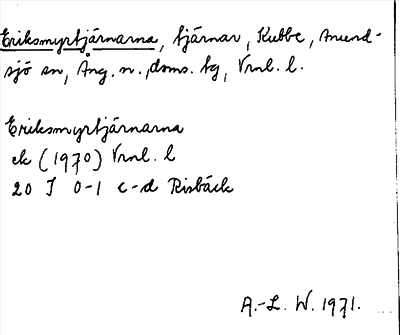 Eriksmyrtjärnarna, tjärnar, Kubbe, Anund-
sjö sn, Ång. n., doms. tg, Vrnl. l.
Eriksmyrtjärnarna
ek (1970) Vrnl. l
20 I 0-1 c-d Risbäck
A.-L. W. 1971.